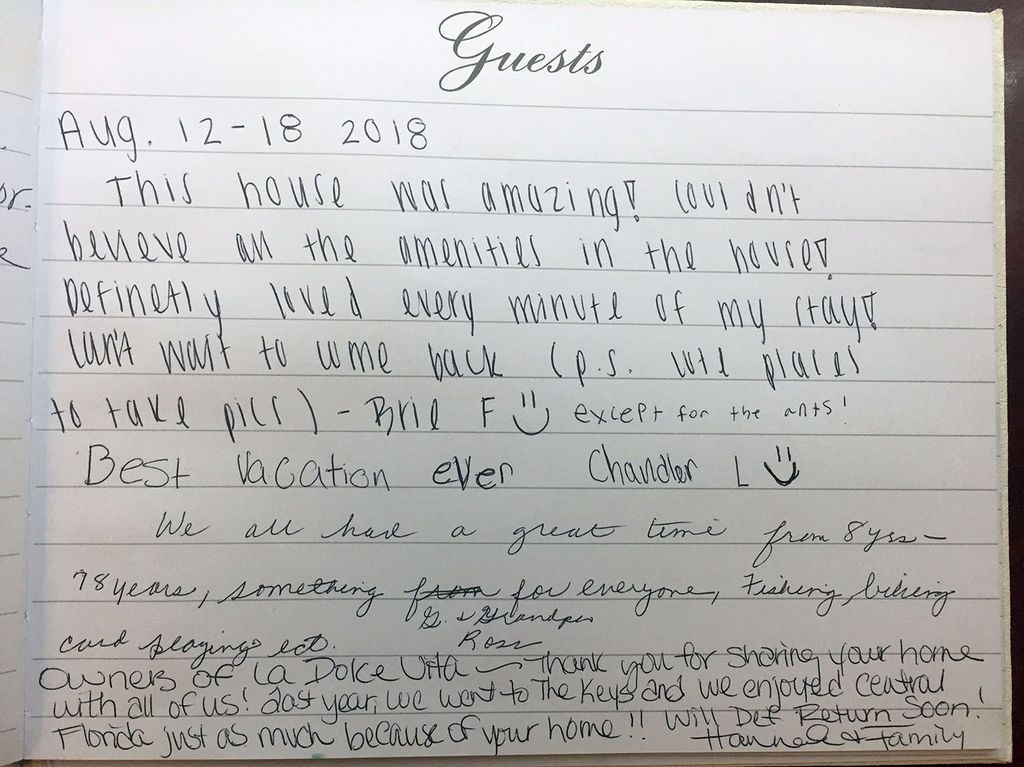 Guests
Aug. 12-18 2018
This house was amazing! Couldn't
believe all the amenities in the house!
Definetly loved every minute of my stay!
Can't wait to come back (p.s. cute places
to take pics) - Brie F except for the ants!
Best vacation ever Chandler L
We all had a great time from 8 yrs -
78 years, something from for everyone, Fishing, biking
G. & Grandpa
card playing ect. Ross
Owners of La Dolce Vita — Thank you for sharing your home
with all of us! Last year, we went to The Keys and we enjoyed central
Florida just as much because of your home!! Will Def Return Soon!
Hannah & Family